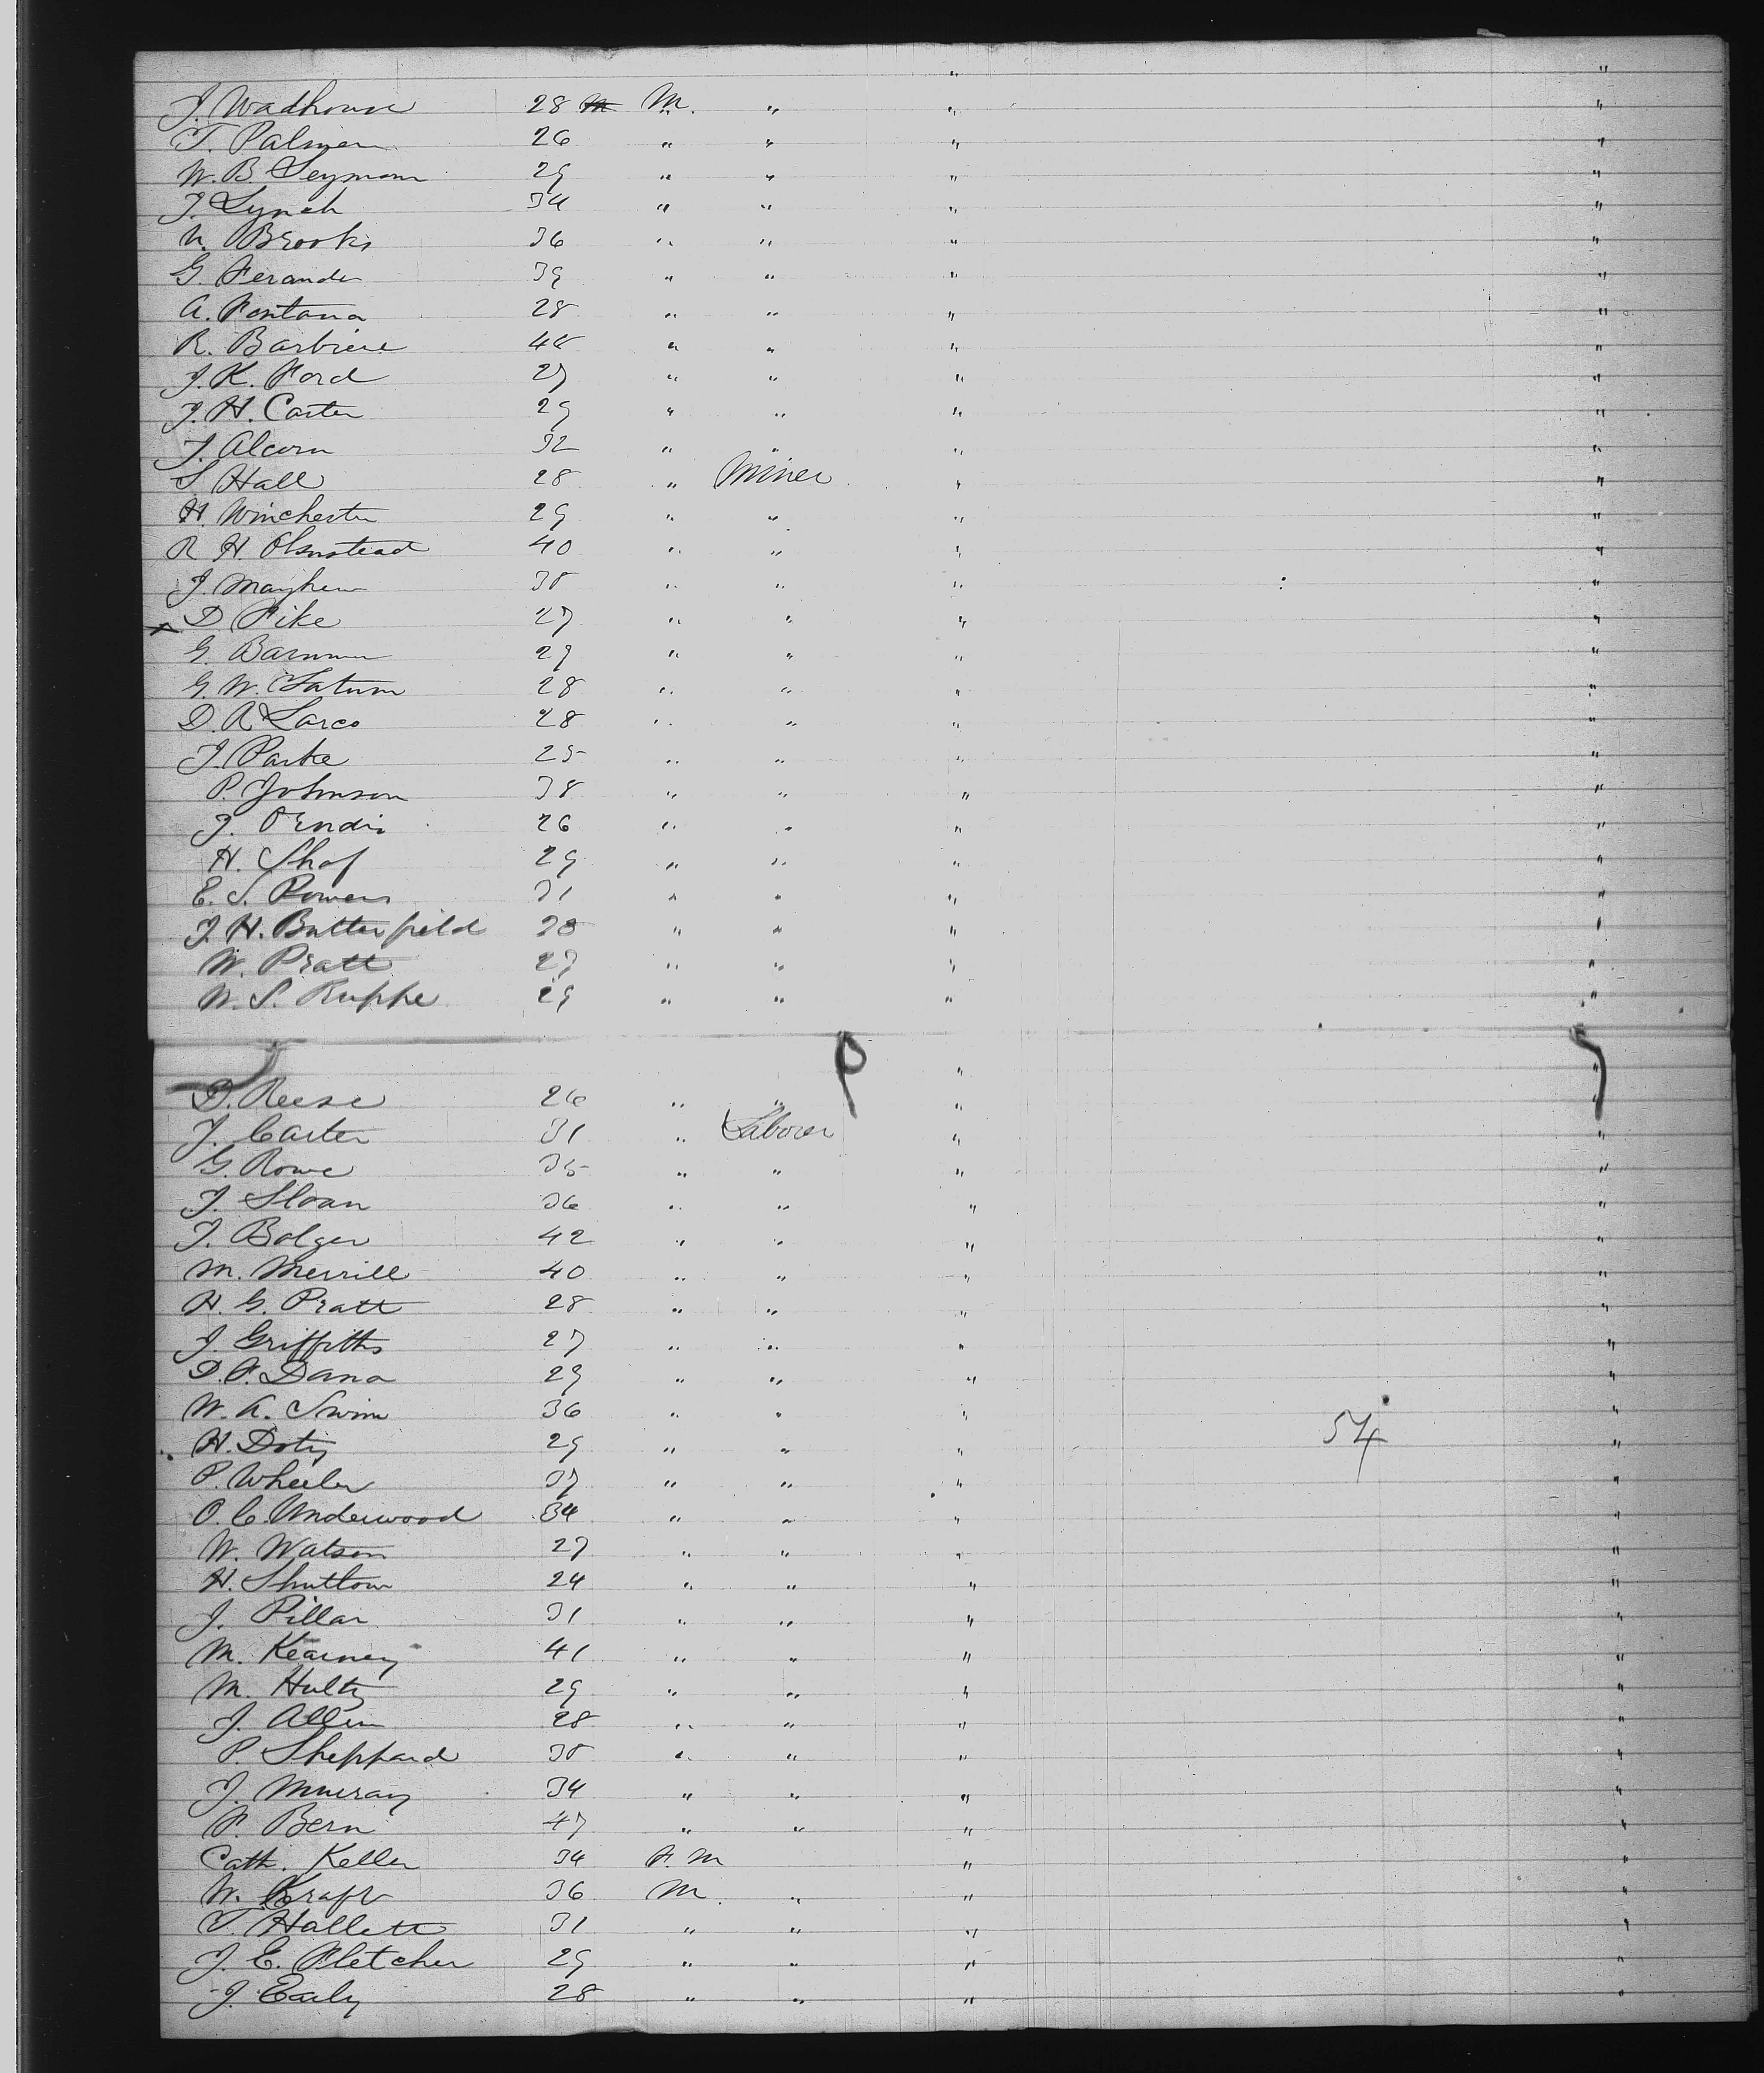 " "
J. Wadhouse 28 M. " " "
T. Palmer 26 " " " "
W. B. Seymour 29 " " " "
J. Lynch 34 " " " "
N. Brooks 36 " " " "
G. Ferander 39 " " " "
A. Fontana 28 " " " "
R. Barbiere 48 " " " "
J. K. Ford 27 " " " "
J. H. Carter 29 " " " "
J. Alcorn 32 " " " "
S Hall 28 " Miner " "
H. Winchester 29 " " " "
R H. Olmstead 40 " " " "
J. Mayhew 38 " " " "
x D Fike 27 " " " "
G. Barnum 29 " " " "
G. W. Tatum 28 " " " "
D. A. Larco 28 " " " "
J. Parke 25 " " " "
P. Johnson 38 " " " "
J. 26 " " " "
H. Shaf 29 " " " "
E. S. Powers 31 " " " "
J. H. Butterfield 28 " " " "
W. Pratt 27 " " " "
W. S. Ruphe 29 " " " "
" "
D. Reese 26 " " " "
J. Carter 31 " Laborer " "
G. Rowe 35 " " " "
J. Sloan 36 " " " "
J. Bolger 42 " " " "
M. Merrill 40 " " " "
H. G. Pratt 28 " " " "
J. Griffiths 27 " " " "
D. F. Dana 29 " " " "
W. A. Swim 36 " " " "
54
H. Doty 29 " " " "
P. Wheeler 37 " " " "
O. C. Underwood 34 " " " "
W. Watson 27 " " " "
H. 24 " " " "
J. Pillar 31 " " " "
M. Kearney 41 " " " "
M. Hultz 29 " " " "
J. Allen 28 " " " "
P. Sheppard 38 " " " "
J. Murray 34 " " " "
F. Bern 47 " " " "
Cath. Keller 34 F. M " "
W. Kraft 36 M. " " "
T. Hallett 31 " " " "
J. E. Fletcher 29 " " " "
J. Early 28 " " " "